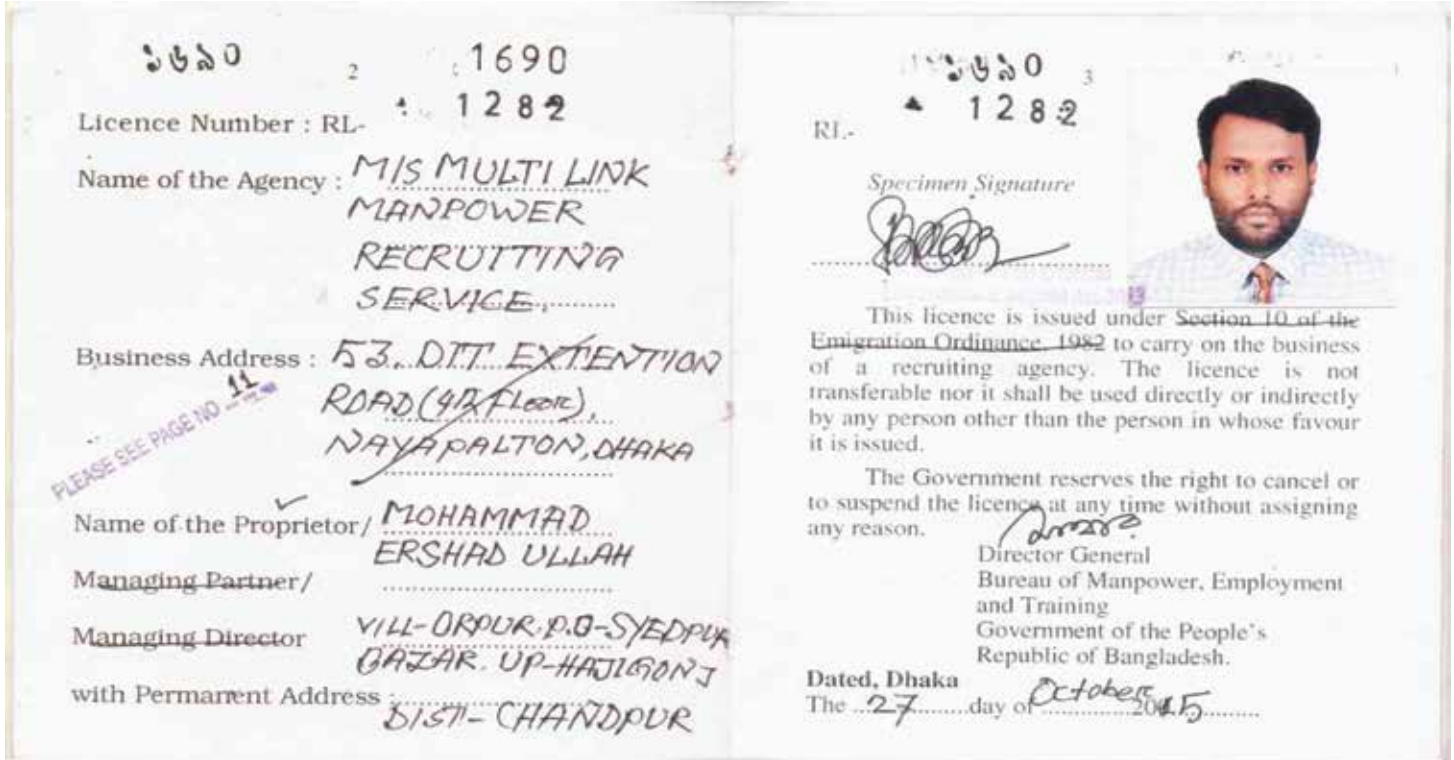 ১৬৯০
2
1690
1282
Licence Number : RL-
Name of the Agency : M/S MULTI LINK
MANPOWER
RECRUITTING
SERVICE,
Business Address : 53, DIT EXTENTION
ROAD (4th FLOOR),
NAYAPALTON, DHAKA
PLEASE SEE PAGE NO - 11
Name of the Proprietor/ MOHAMMAD
ERSHAD ULLAH
Managing Partner/
Managing Director
VILL-ORPUR. P.O-SYEDPUR
BAZAR. UP-HAJIGONJ
with Permanent Address :
DIST- CHANDPUR
১৬৯০
3
1282
RL-
Specimen Signature
This licence is issued under Section 10 of the
Emigration Ordinance, 1982 to carry on the business
of a recruiting agency. The licence is not
transferable nor it shall be used directly or indirectly
by any person other than the person in whose favour
it is issued.
The Government reserves the right to cancel or
to suspend the licence at any time without assigning
any reason.
Director General
Bureau of Manpower, Employment
and Training
Government of the People's
Republic of Bangladesh.
Dated, Dhaka
The 27 day of October 2015